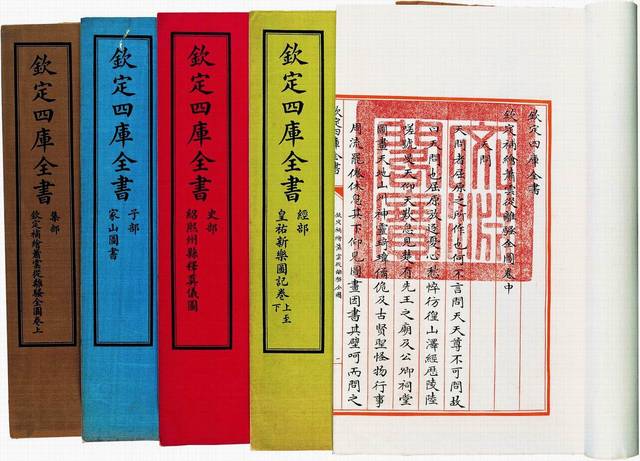 欽定四庫全書
欽定補繪蕭雲從離騷全圖卷中
天問
天問者屈原之所作也何不言問天天尊不可問故
曰天問也屈原放逐憂心愁悴彷徨山澤經歷陵陸
嗟號旻天仰天歎息見楚有先王之廟及公卿祠堂
圖畫天地山川神靈琦瑋僪佹及古賢聖怪物行事
周流罷倦休息其下仰見圖畫因書其壁呵而問之
文淵閣寶
欽定四庫全書
欽定補繪蕭雲從離騷全圖
欽定四庫全書
經部
皇祐新樂圖記卷上至下
欽定四庫全書
史部
紹熙州縣釋奠儀圖
欽定四庫全書
子部
家山圖書
欽定四庫全書
集部
欽定補繪蕭雲從離騷全圖卷上